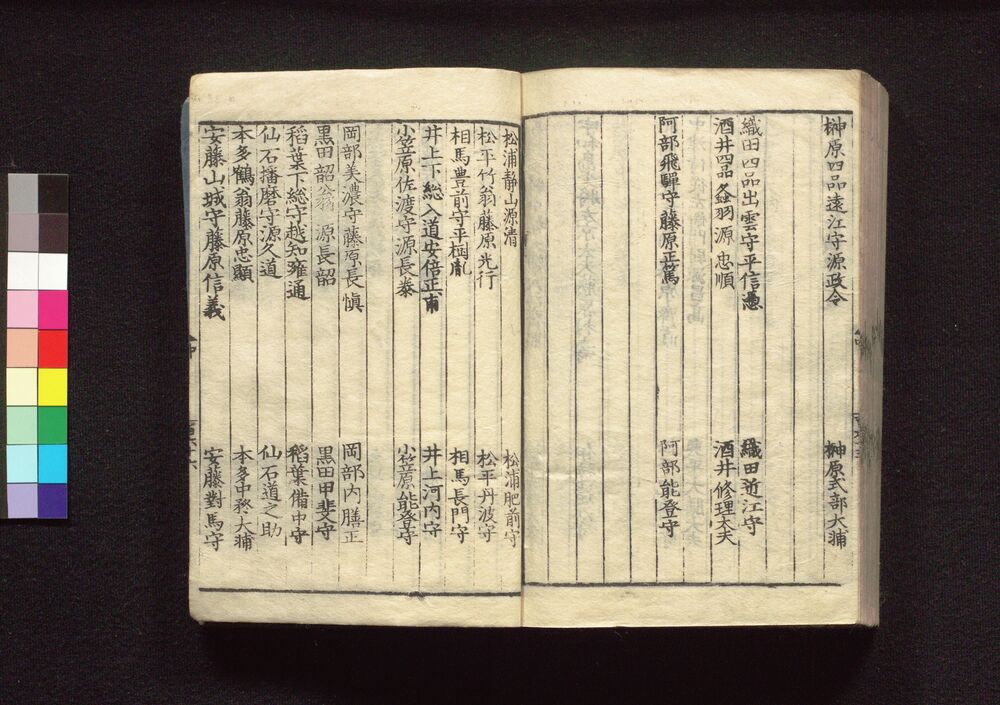 榊原四品遠江守源政令　榊原式部大輔
織田四品出雲守平信憑　織田近江守
酒井四品 源忠順　酒井修理大夫
阿部飛騨守藤原正篤　阿部能登守
松浦静山源清　松浦肥前守
松平竹翁藤原光行　松平丹波守
相馬豊前守平 胤　相馬長門守
井上下総入道安倍正甫　井上河内守
小笠原佐渡守源長泰　小笠原能登守
岡部美濃守藤原長愼　岡部内膳正
黒田韶翁　源長韶　黒田甲斐守
稻葉下総守越知雍通　稻葉備中守
仙石播磨守源久道　仙石道之助
本多鶴翁藤原忠顯　本多中務大輔
安藤山城守藤原信義　安藤對馬守